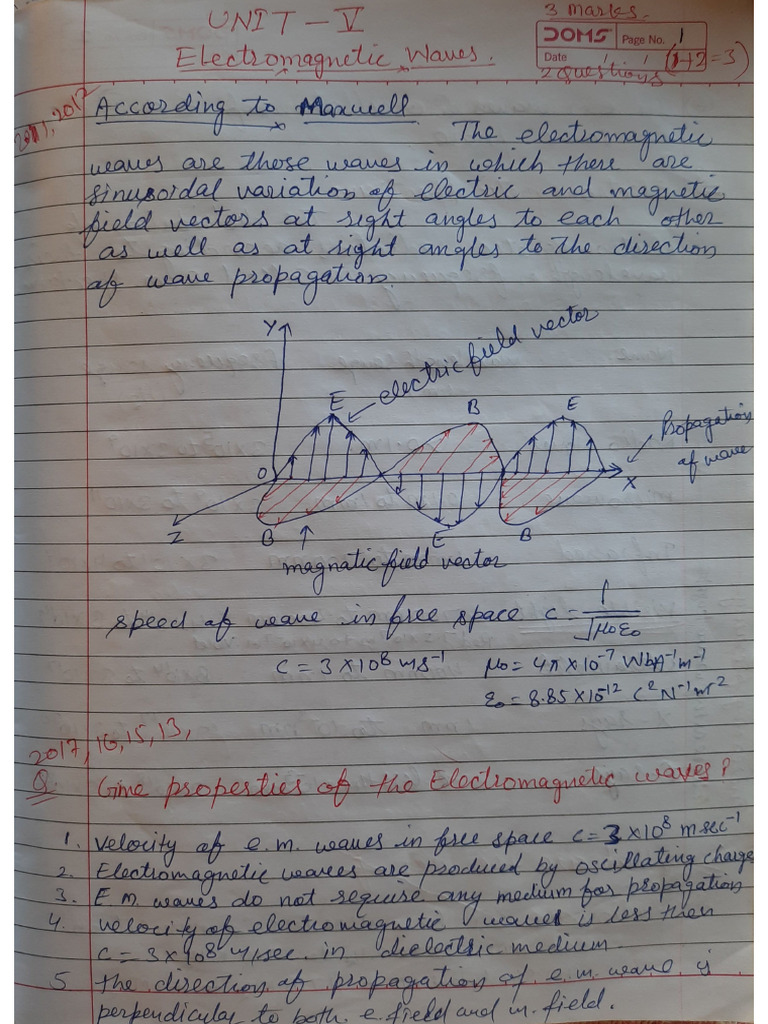 UNIT - V
3 marks.
DOMS Page No. 1
Date
(1+2=3)
2 questions
Electromagnetic Waves.
2011, 2012
According to Maxwell
The electromagnetic
waves are those waves in which there are
sinusoidal variation of electric and magnetic
field vectors at right angles to each other
as well as at right angles to the direction
of wave propagation.
Y
electric field vector
E
B
E
Propagation
of wave
O
X
Z
B
E
B
magnatic field vector
speed of wave in free space c = 1/√μ0ε0
C = 3×10⁸ ms⁻¹ μ0 = 4π×10⁻⁷ WbA⁻¹m⁻¹
ε0 = 8.85×10⁻¹² C²N⁻¹m⁻²
2017, 16, 15, 13,
Q. Give properties of the Electromagnetic waves?
1. Velocity of e.m. waves in free space c = 3×10⁸ msec⁻¹
2. Electromagnetic waves are produced by oscillating charge
3. E M. waves do not require any medium for propagation
4. velocity of electromagnetic waves is less then
C = 3×10⁸ m/sec. in dielectric medium.
5. the direction of propagation of e.m. wave is
perpendicular to both e. field and m. field.